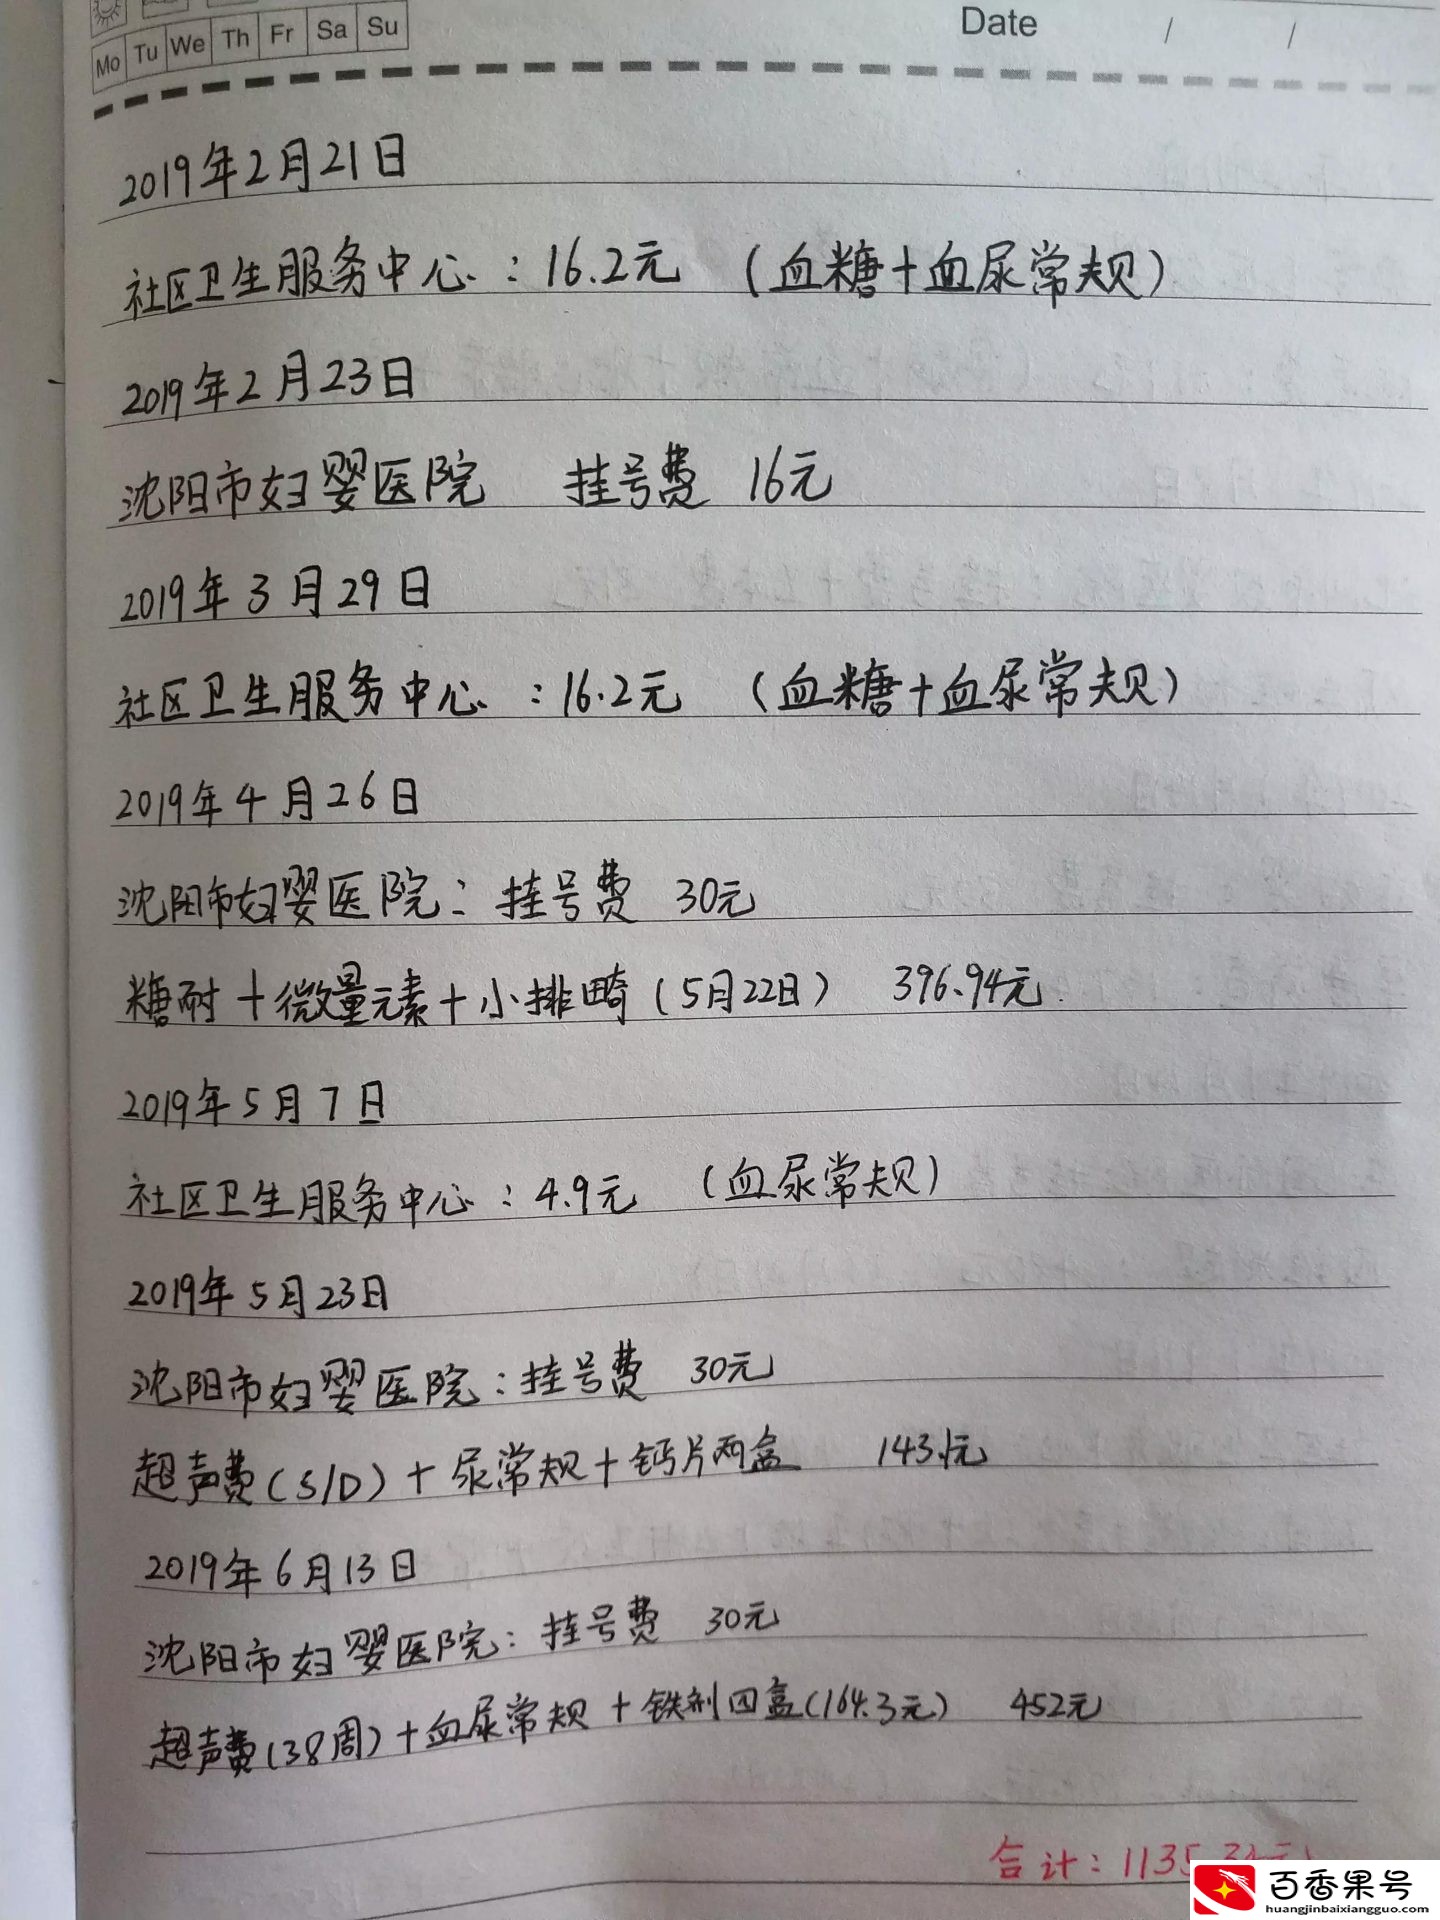 Mo Tu We Th Fr Sa Su
Date / /
2019年2月21日
社区卫生服务中心：16.2元 （血糖+血尿常规）
2019年2月23日
沈阳市妇婴医院 挂号费 16元
2019年3月29日
社区卫生服务中心：16.2元 （血糖+血尿常规）
2019年4月26日
沈阳市妇婴医院：挂号费 30元
糖耐+微量元素+小排畸（5月22日） 396.94元
2019年5月7日
社区卫生服务中心：4.9元 （血尿常规）
2019年5月23日
沈阳市妇婴医院：挂号费 30元
超声费（S/D）+尿常规+钙片两盒 143.1元
2019年6月13日
沈阳市妇婴医院：挂号费 30元
超声费（38周）+血尿常规+铁剂四盒（164.3元） 452元
合计：1135.34元
百香果号
huangjinbaixiangguo.com